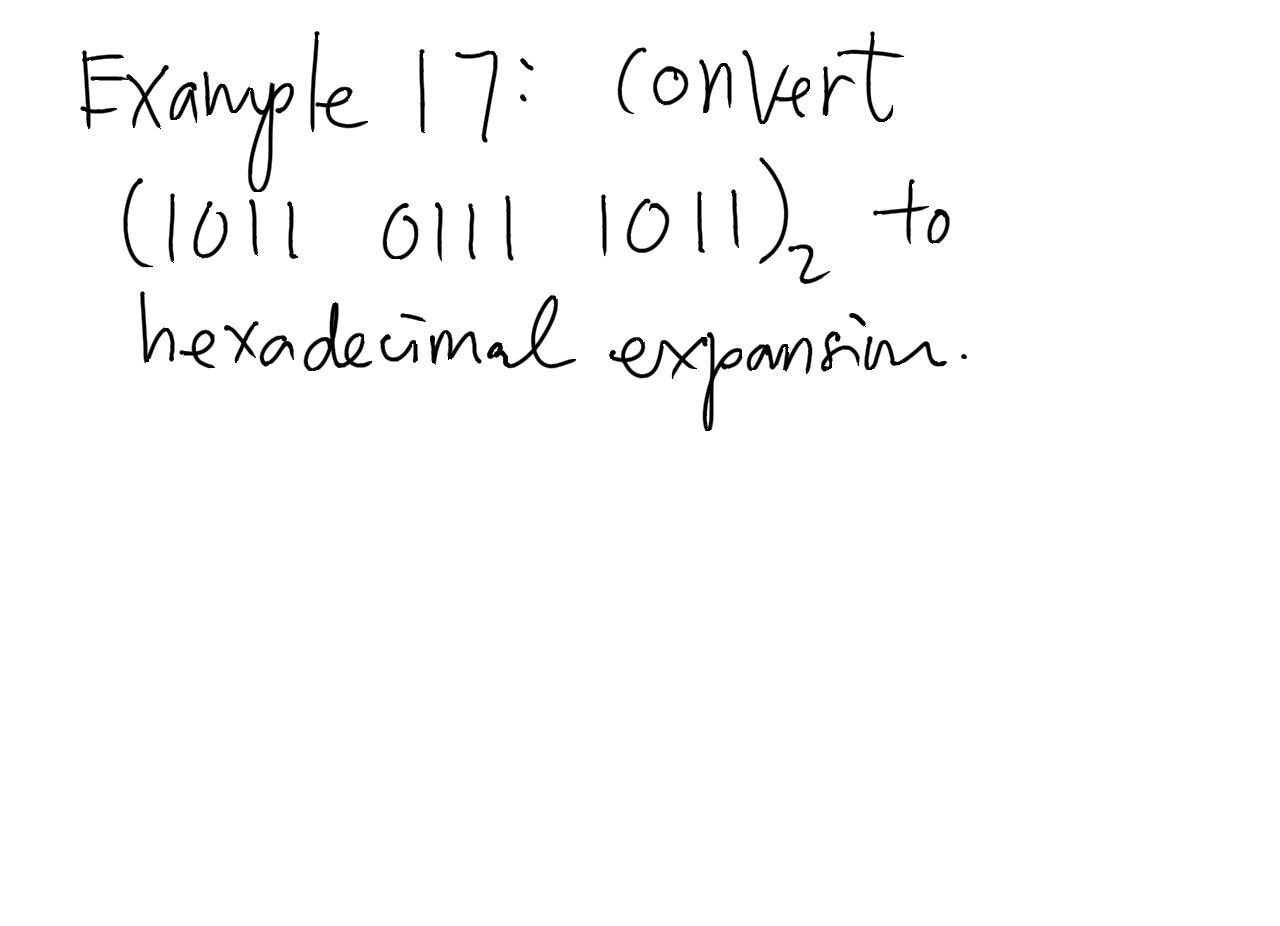 Example 17: Convert
(1011 0111 1011)₂ to
hexadecimal expansion.